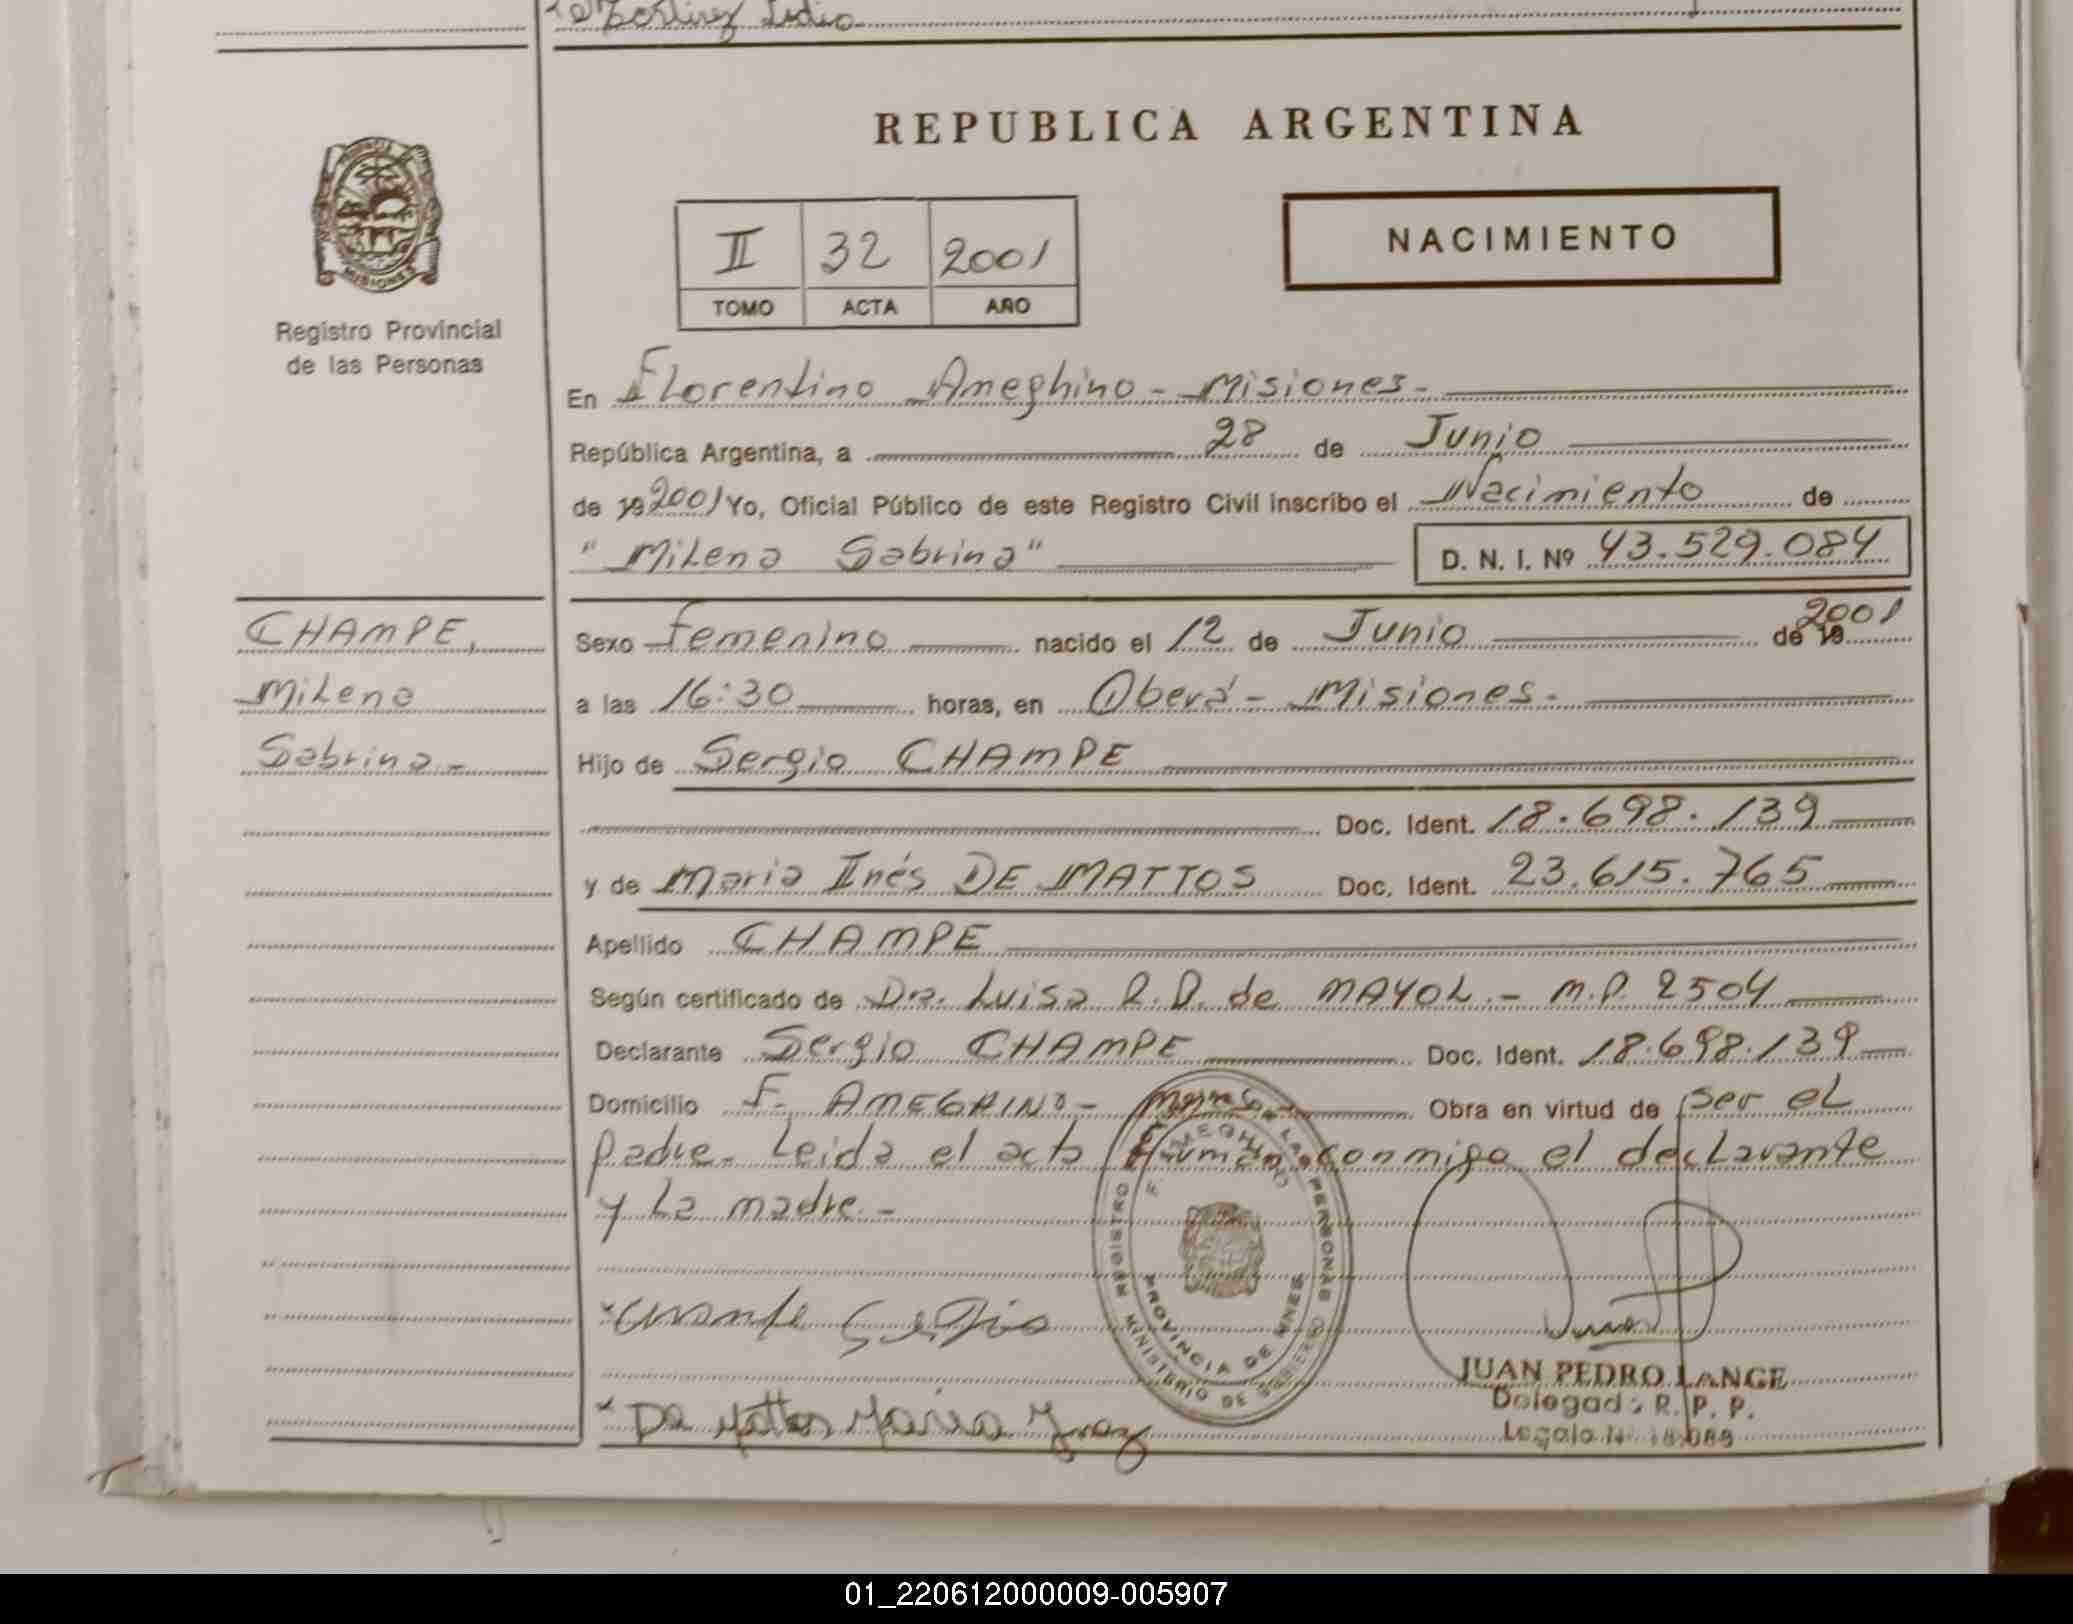 REPUBLICA ARGENTINA
II 32 2001
TOMO ACTA AÑO
NACIMIENTO
PROVINCIA DE MISIONES
Registro Provincial
de las Personas
En Florentino Ameghino - Misiones.-
República Argentina, a 28 de Junio
de 19 2001 Yo, Oficial Público de este Registro Civil inscribo el Nacimiento de
"Milena Sabrina" D. N. I. Nº 43.529.084
CHAMPE,
Milena
Sabrina -
Sexo Femenino nacido el 12 de Junio de 19 2001
a las 16:30 horas, en Oberá - Misiones.-
Hijo de Sergio CHAMPE
Doc. Ident. 18.698.139
y de Maria Inés DE MATTOS Doc. Ident. 23.615.765
Apellido CHAMPE
Según certificado de Dra. Luisa R.D. de MAYOL - M.P. 2504
Declarante Sergio CHAMPE Doc. Ident. 18.698.139
Domicilio F. AMEGHINO - Obra en virtud de ser el
padre. Leida el acta conmigo el declarante
y la madre.-
REGISTRO DE LAS PERSONAS
F. AMEGHINO
PROVINCIA DE MNES
MINISTERIO DE GOBIERNO
De Mattos Maria
JUAN PEDRO LANGE
Delegado R. P. P.
Legajo
01_220612000009-005907